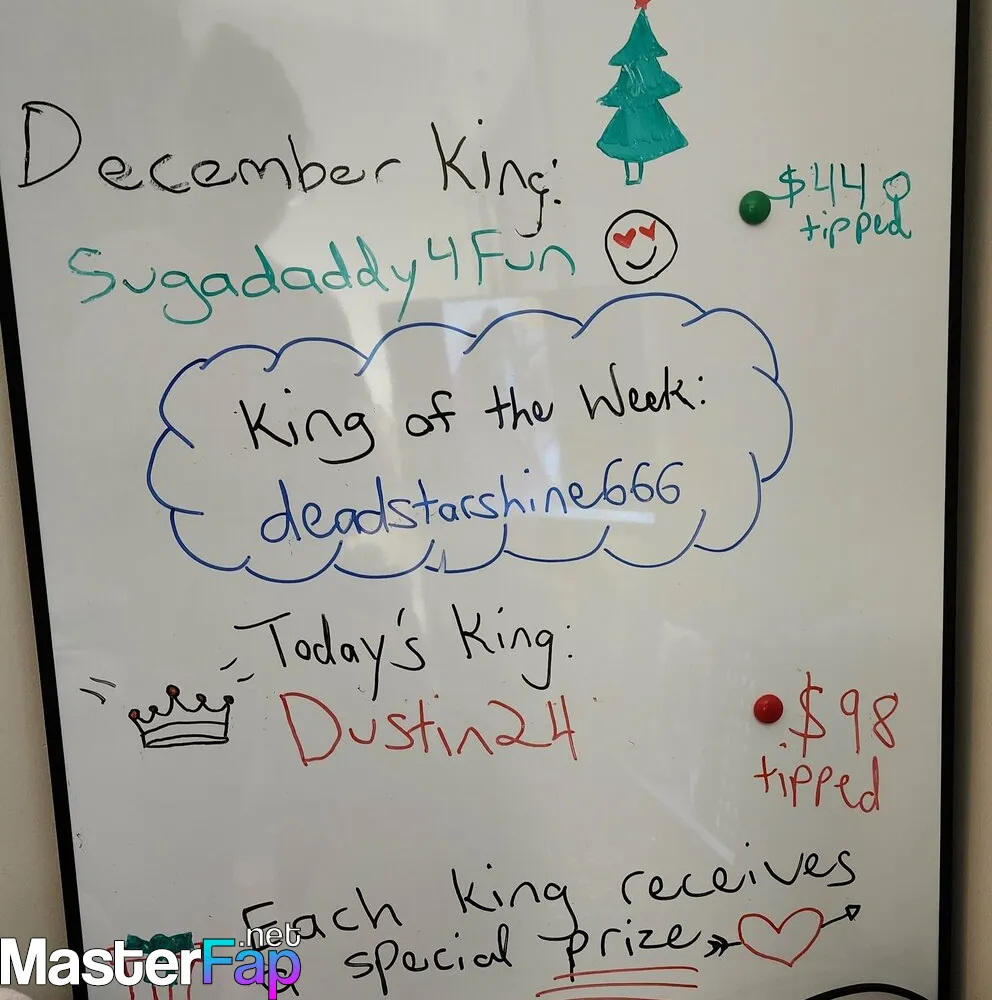 December King:
$449
tipped
Sugadaddy4Fun
King of the Week:
deadstarshine666
Today's King:
Dustin24
$98
tipped
Each king receives
a special prize
MasterFap.net